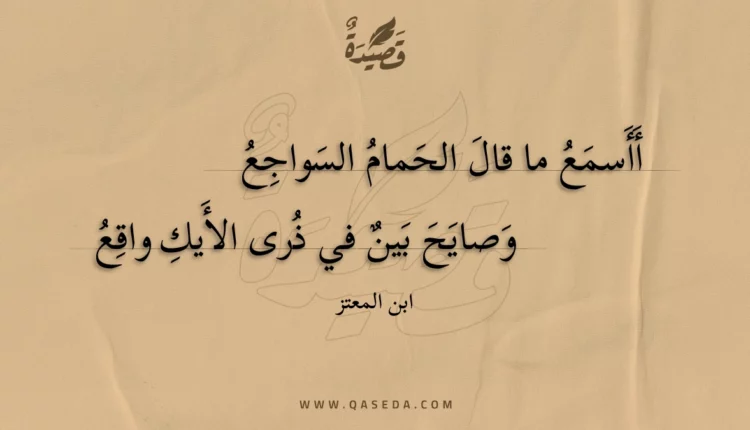 قَصِيدَةٌ
أَأَسمَعُ ما قالَ الحَمامُ السَواجِعُ
وَصايَحَ بَينٌ في ذُرى الأَيكِ واقِعُ
ابن المعتز
WWW.QASEDA.COM